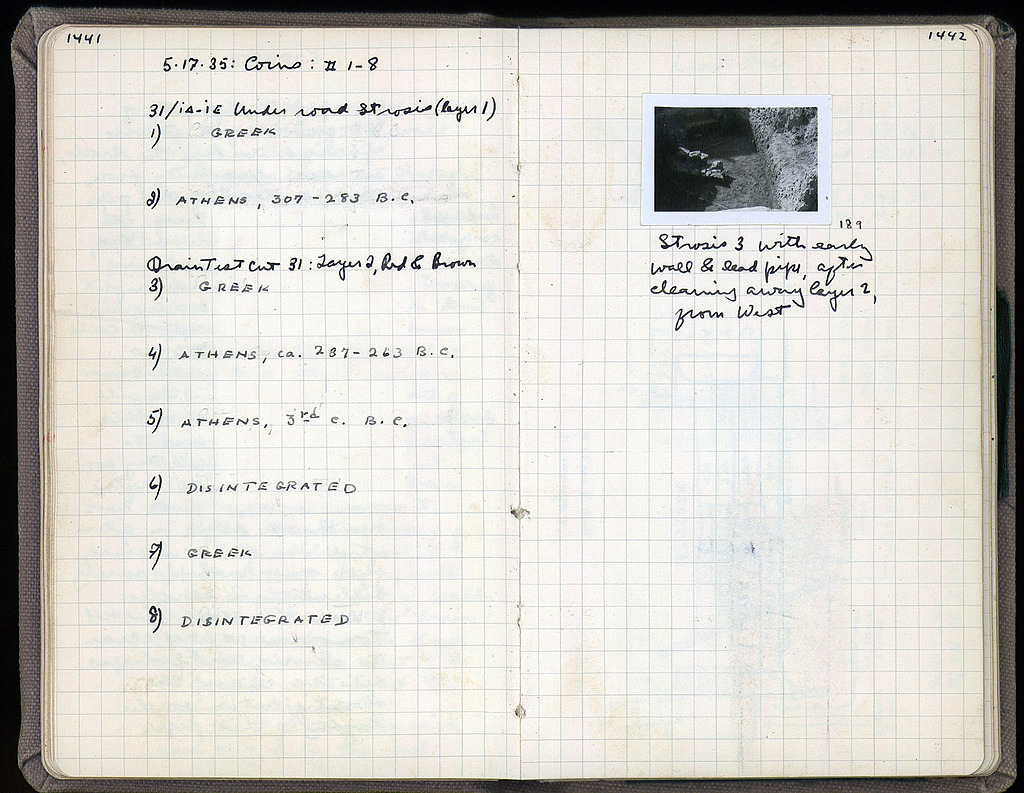 1441
5·17·35: Coins: # 1-8
31/ΙΔ-ΙΕ Under road Strosis (layer 1)
1) GREEK
2) ATHENS, 307-283 B.C.
Drain Test Cut 31: Layer 2, Red & Brown
3) GREEK
4) ATHENS, ca. 287-263 B.C.
5) ATHENS, 3rd C. B.C.
6) DISINTEGRATED
7) GREEK
8) DISINTEGRATED
1442
189
Strosis 3 with early
wall & lead pipe, after
cleaning away layer 2,
from West